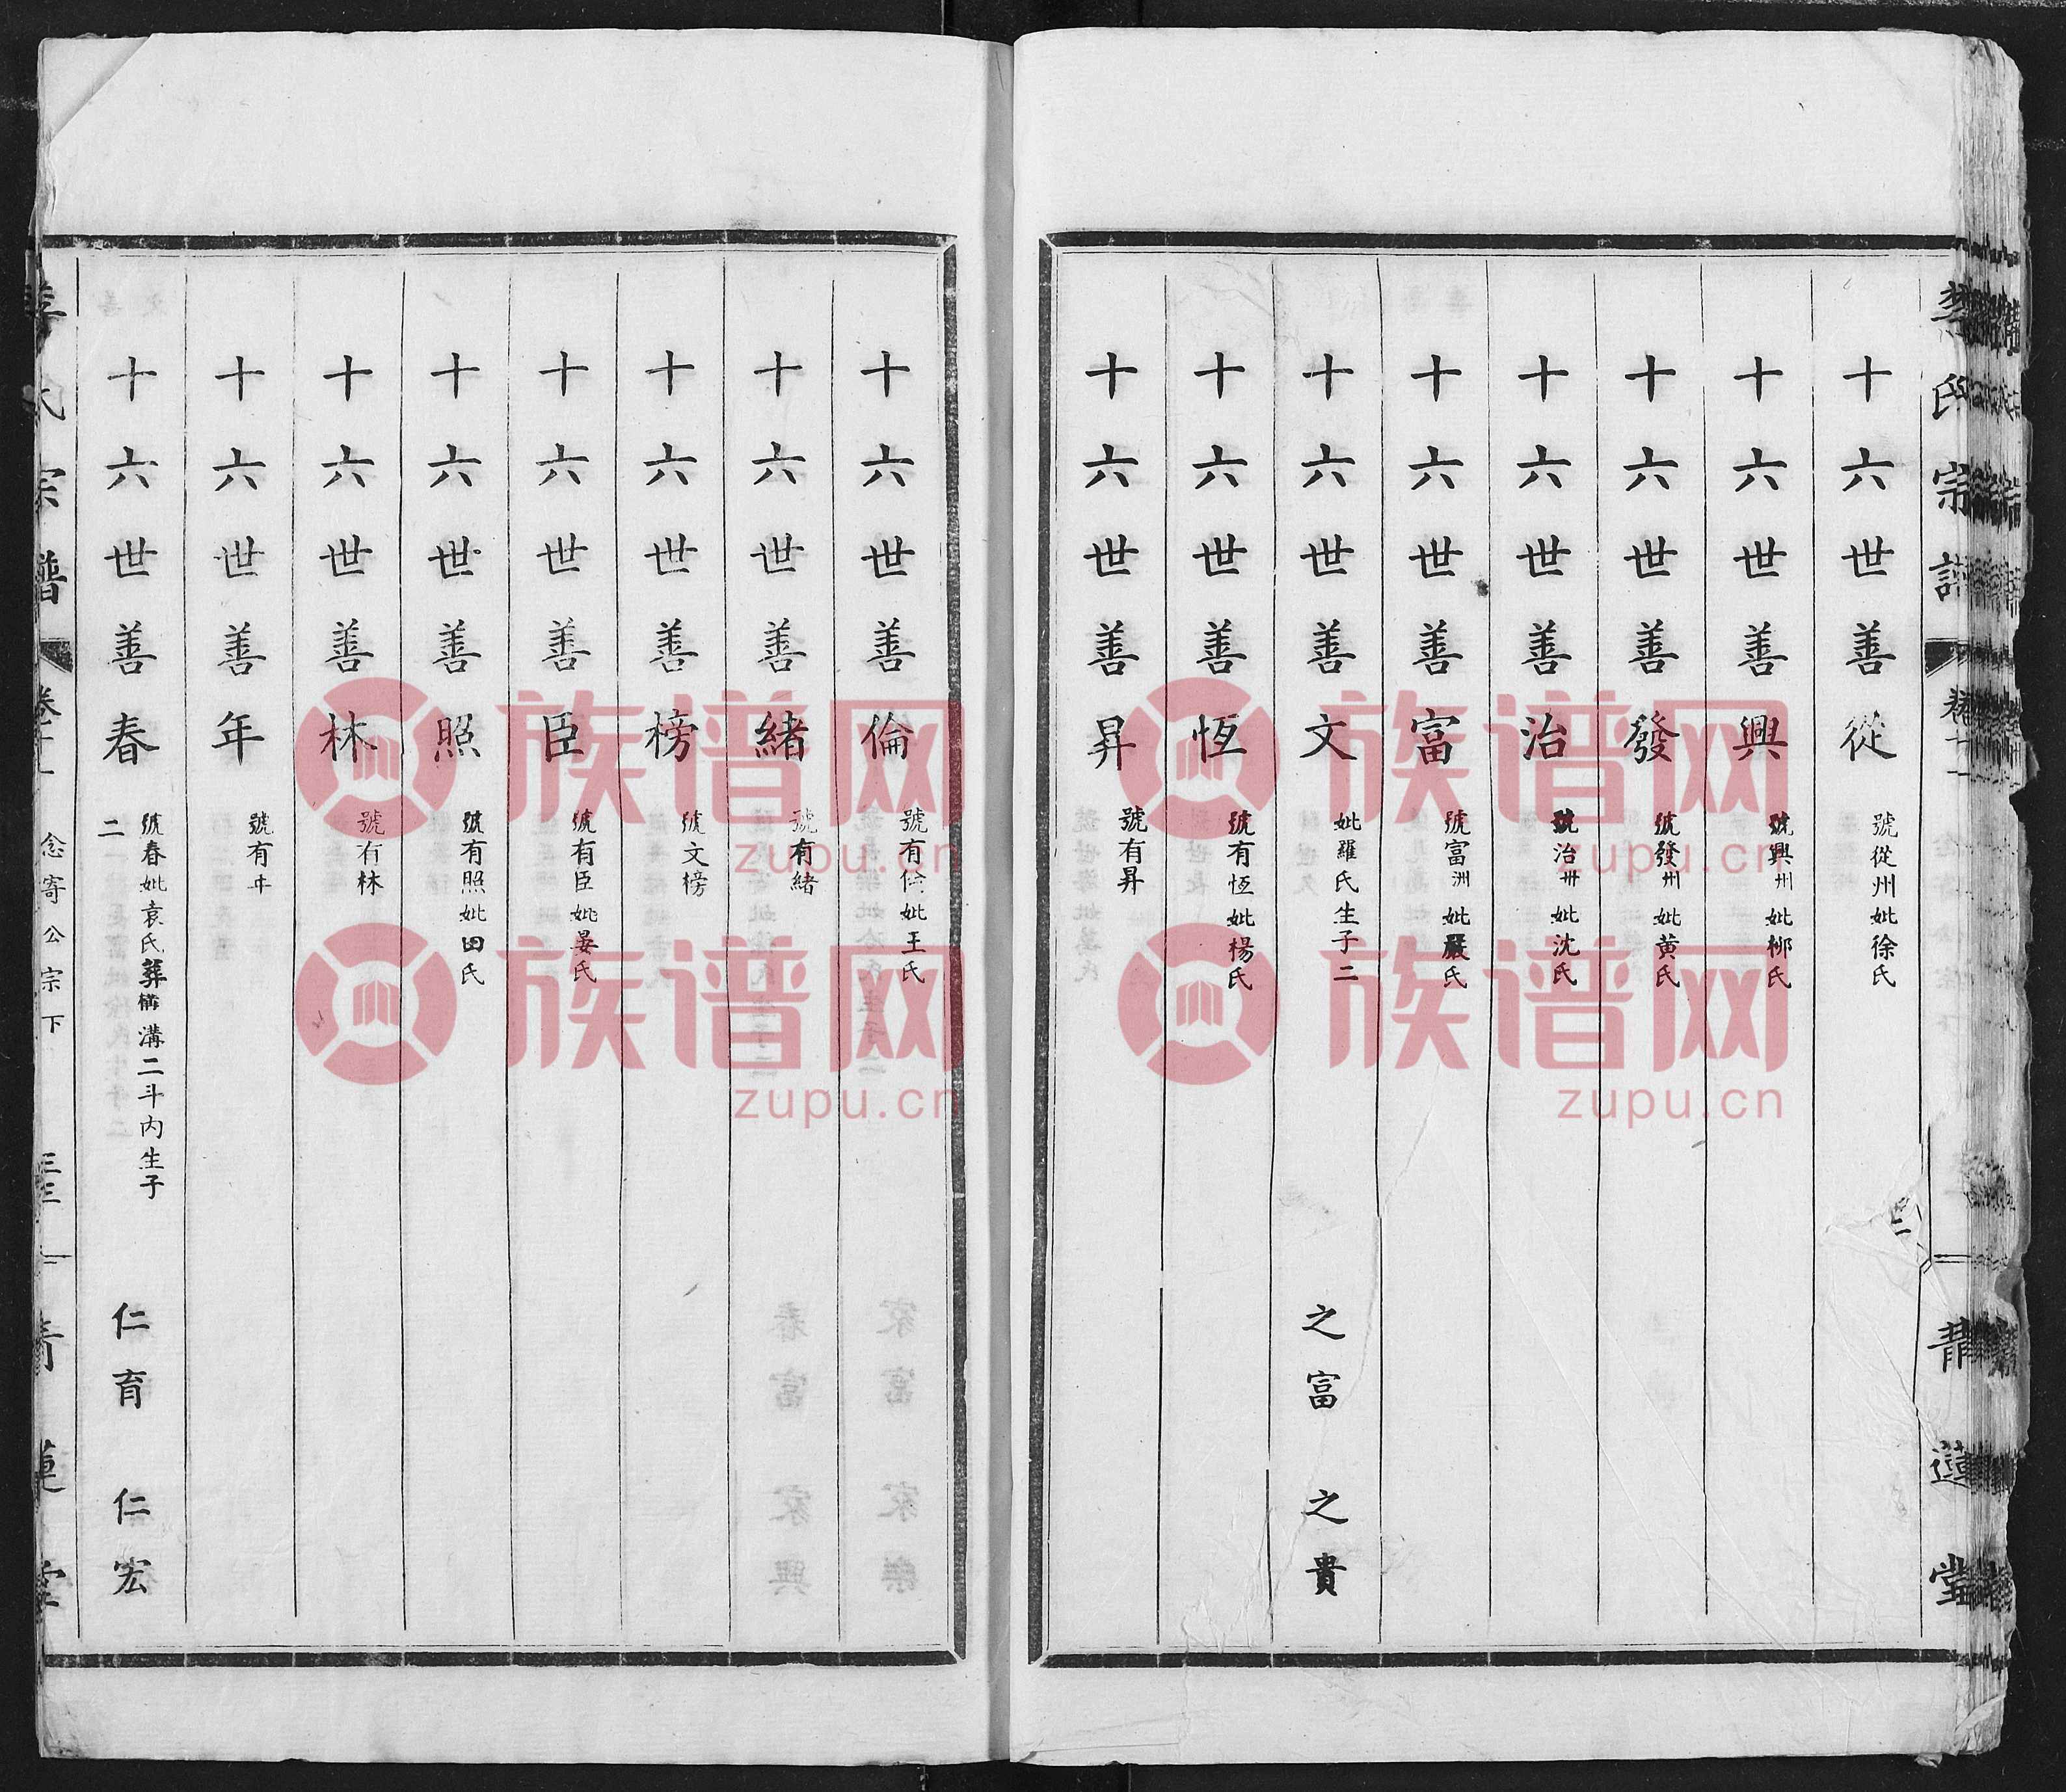 李氏宗譜
卷十一
青蓮堂
十六世善從 號從州妣徐氏
十六世善興 號興州妣柳氏
十六世善發 號發州妣黄氏
十六世善治 號治卅妣沈氏
十六世善富 號富洲妣嚴氏
十六世善文 妣羅氏生子二 之富 之貴
十六世善恆 號有恆妣楊氏
十六世善昇 號有昇
十六世善倫 號有倫妣王氏
十六世善緒 號有緒
十六世善榜 號文榜
十六世善臣 號有臣妣晏氏
十六世善照 號有照妣田氏
十六世善林 號有林
十六世善年 號有
十六世善春 號春妣袁氏葬構溝二斗内生子
二 仁育 仁宏
李氏宗譜
卷十一 念寄公宗下
青蓮堂
族谱网
zupu.cn
族谱网
zupu.cn
族谱网
zupu.cn
族谱网
zupu.cn